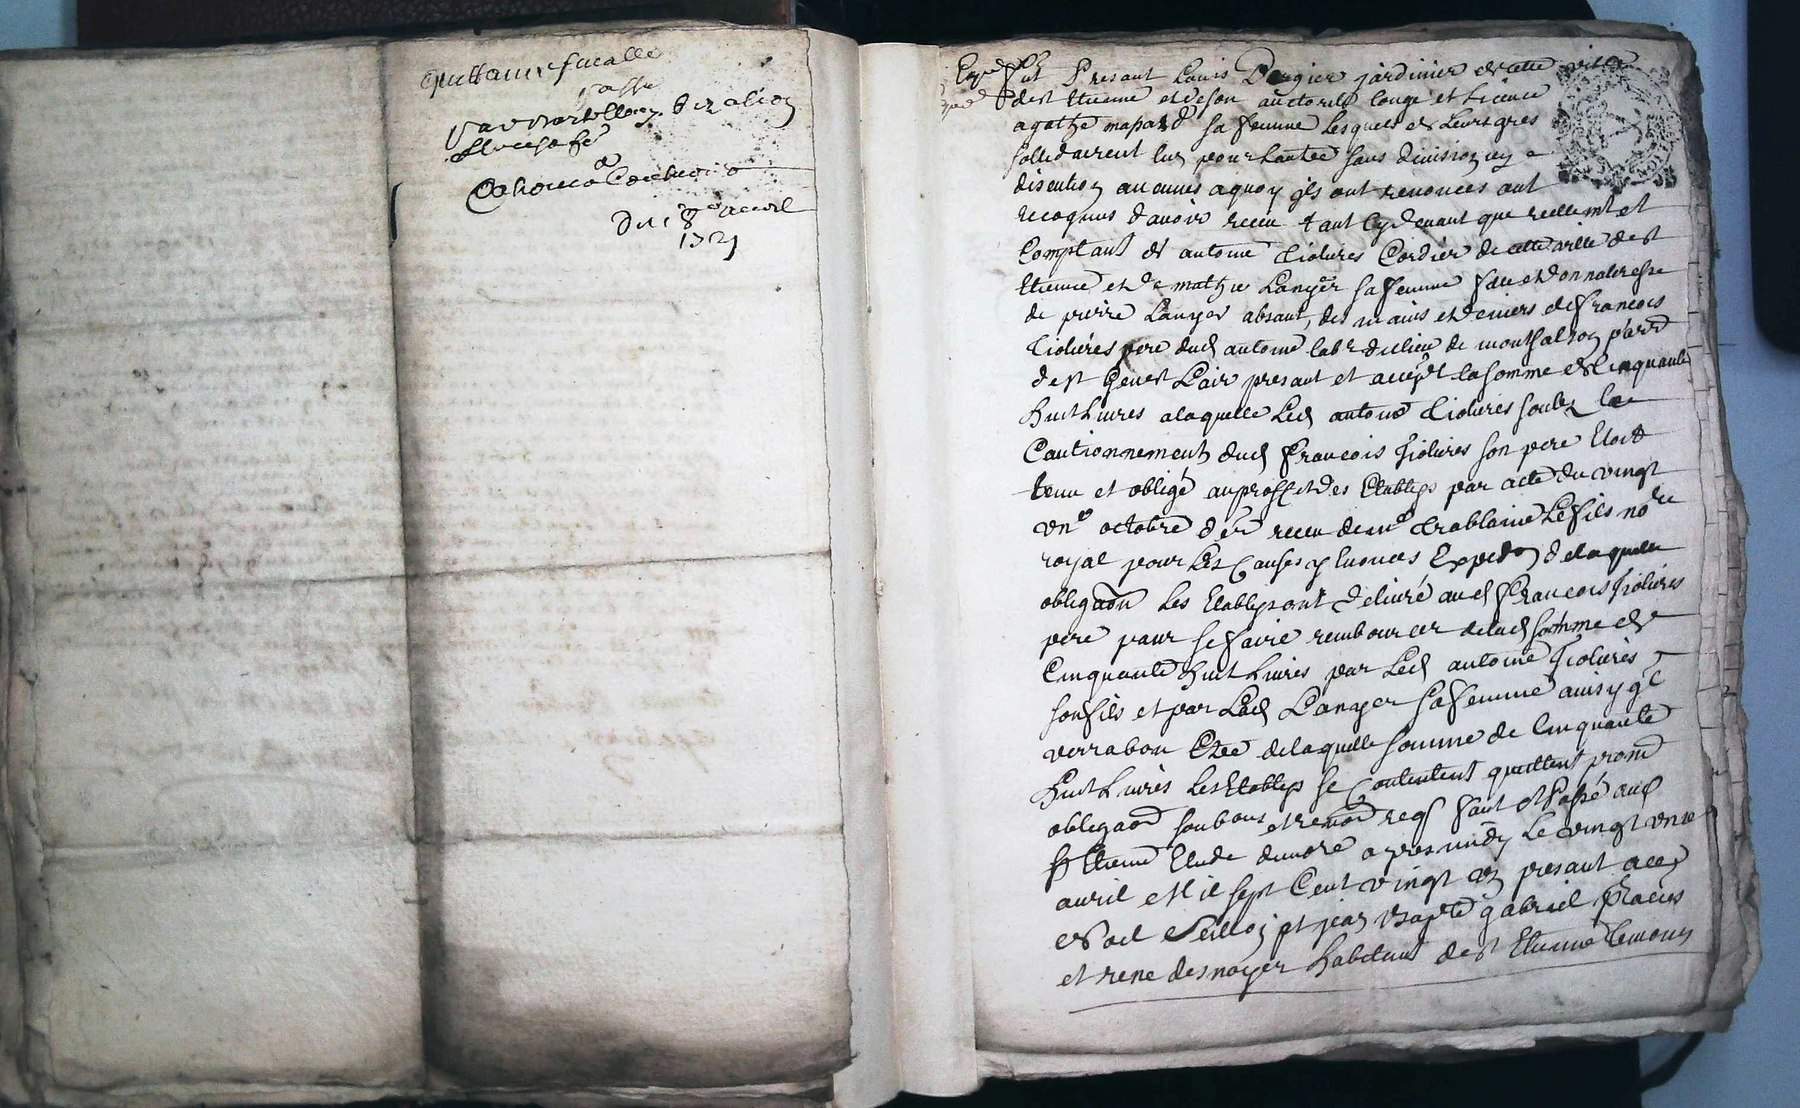 quittance finalle
passé
du 18e avril
1721
Expé
fut Presant Louis Dergier jardinier de cette ville
de st Etienne et de son auctorité longé et Licence
agathe mapard sa femme Lesquels de Leurs gres
sollidairement lun pour lautre sans division ny
discution aucunes a quoy ils ont renoncés ont
recognus davoir receu tant cy devant que reellemt et
Comptant de antoine Tiolieres Cordier de cette ville de st
Etienne et de mathie Lanyer sa femme fille et donnateresse
de pierre Lanyer absant, des mains et deniers de francois
Tiolieres pere dud antoine labr du lieu de montsalson parr
de st Genest Lair presant et accept la somme de Cinquante
huit Livres a laquelle Led antoine Tiolieres soubz le
Cautionnement dud francois Tiolieres son pere Etoit
tenu et obligé au proffit des Etablys par acte du vingt
un octobre der receu de me Trablaine Le fils nore
royal pour Les Causes y Enoncés Expedon de laquelle
obligaon Les Etablys ont delivré aud francois Tiolieres
pere pour se faire rembourcer de lad somme de
Cinquante huit Livres par Led antoine Tiolieres
son fils et par Lad Lanyer sa femme ainsy ql
verra bon Etre de laquelle somme de Cinquante
huit Livres Les Etablys se Contentent quittent prom
obligaon soubons et renon req fait et passé aud
st Etienne Etude du nore apres midy Le vingt une
avril Mil sept Cent vingt un presant
et jean gabriel
et rene desnoyer habitans de st Etienne temoins